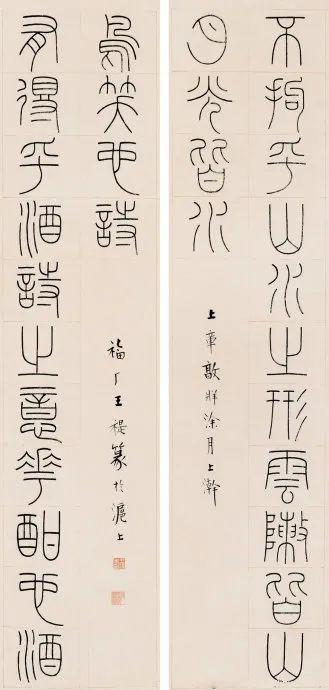 不拘乎山水之形雲敶皆山
月光皆水
上章敦牂涂月上澣
有得乎酒詩之意華酣也酒
鳥笑也詩
福厂王禔篆於滬上